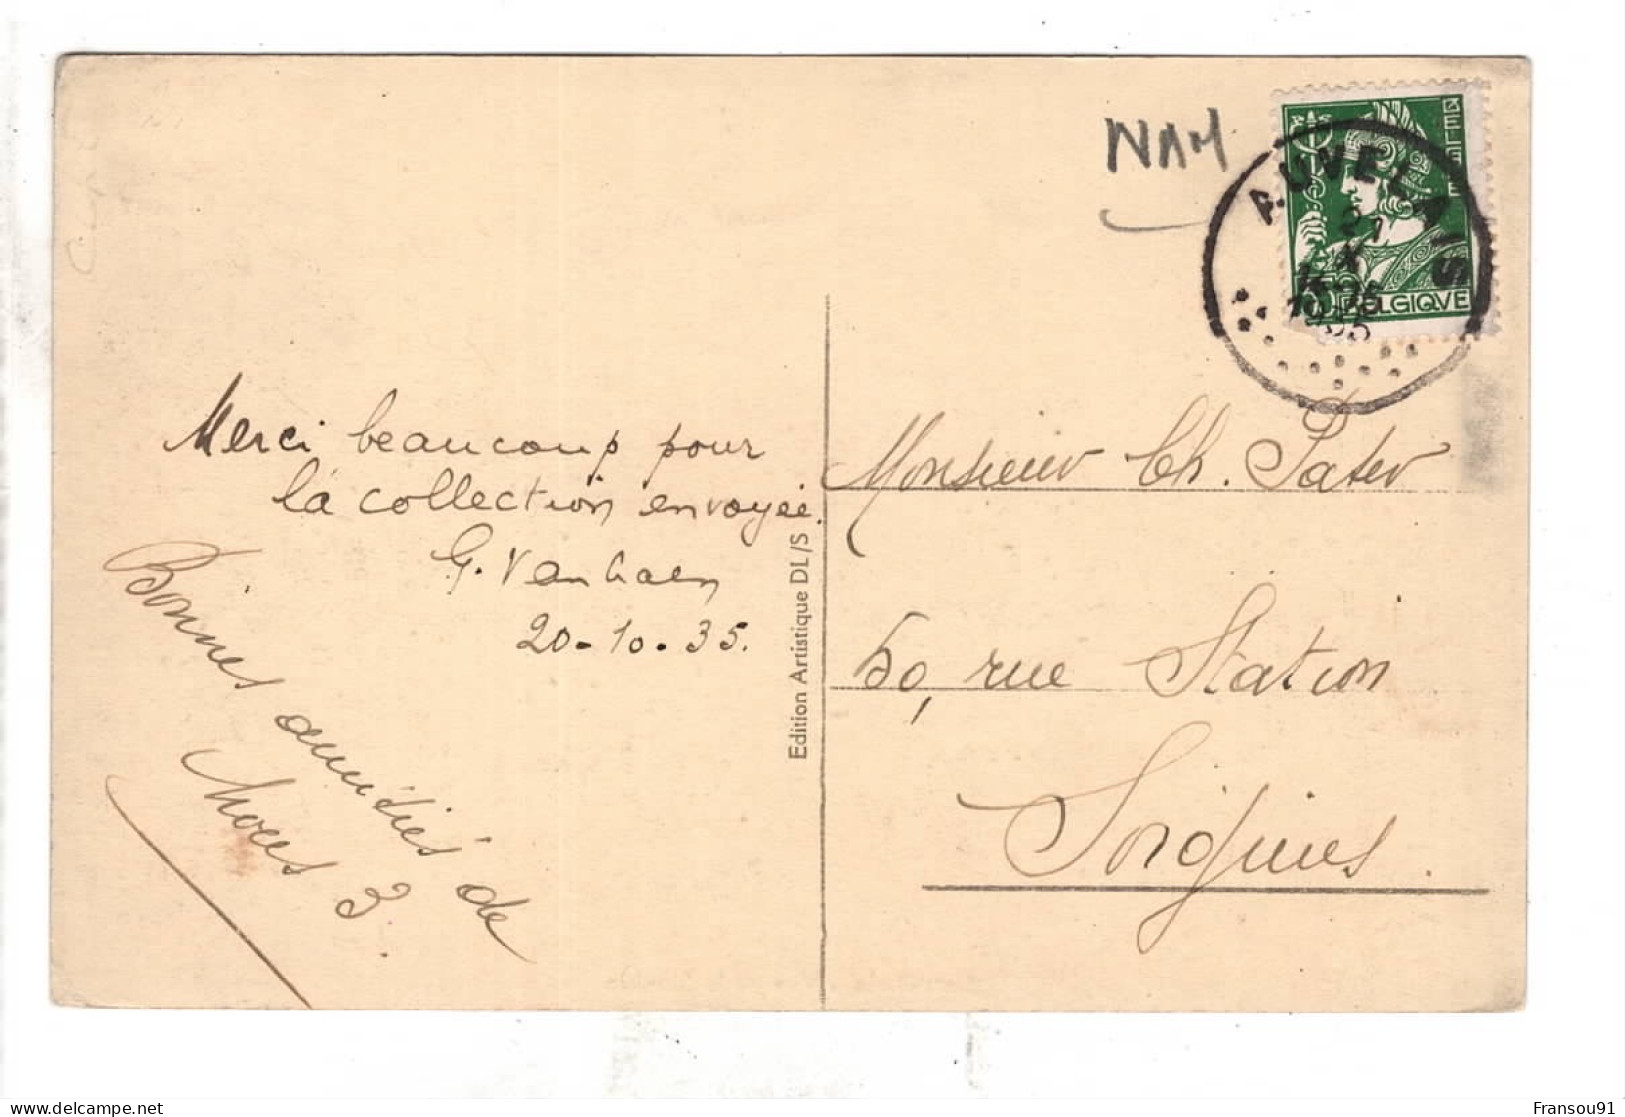 NAM
AUVELAIS
21
X
1935
BELGIQVE
Merci beaucoup pour
la collection envoyée.
G. Vanhaen
20-10-35.
Bonnes amitiés de
3.
Edition Artistique DL/S
Monsieur Ch. Pater
50, rue Station
Soignies.
Fransou91